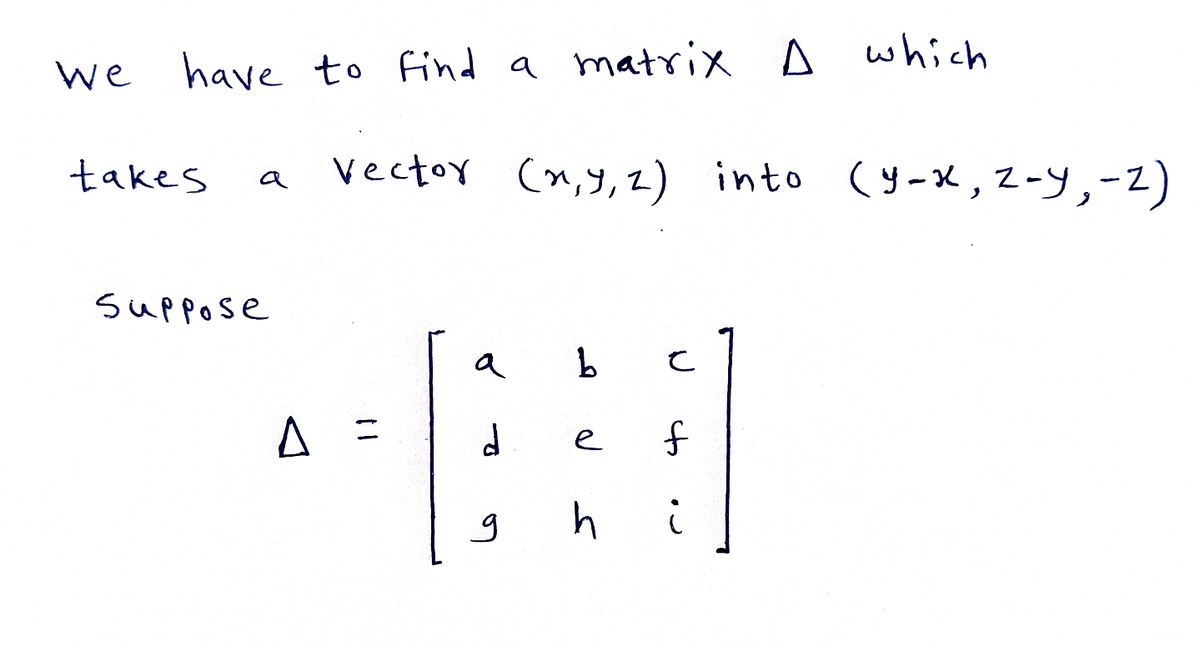 We have to find a matrix Δ which
takes a vector (x,y,z) into (y-x, z-y, -z)
Suppose
a b c
Δ = d e f
g h i